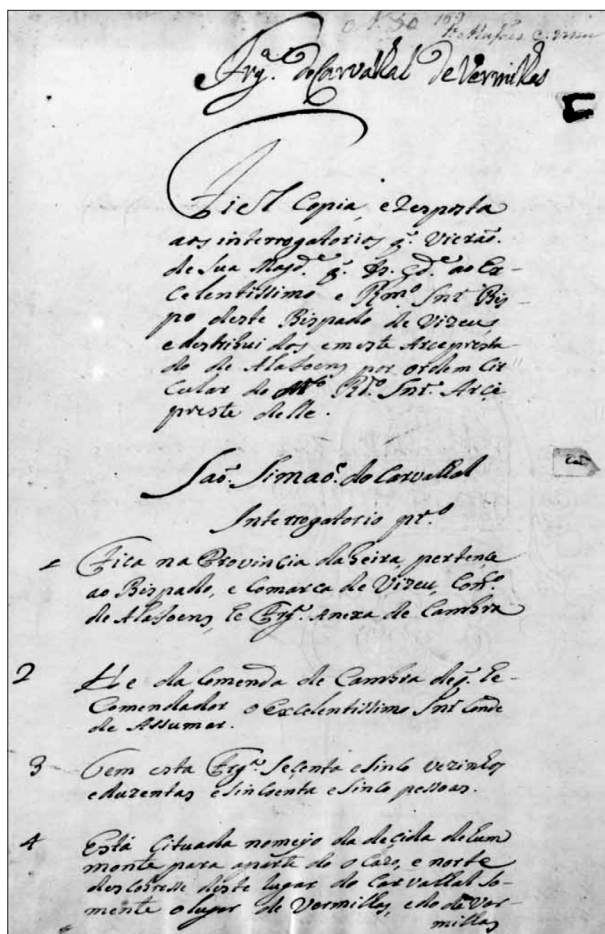 169
Frgª. do Carvalhal de Vermilhas
Fiel Copia, e Resposta
aos interrogatorios q̃. Vieraõ.
de Sua Magdᵉ. q̃. D. Gdᵉ. ao Ex-
celentissimo e Rmº. Snr Bis-
po deste Bispado de Vizeu
e destribuidos em este Arcepresta-
do de Alafoens por ordem Cir-
cular do Mtº. Rdº. Snr. Arce
preste delle.
Saõ. Simaõ. do Carvalhal
Interrogatorio prº
1 Fica na Provincia da beira, pertençe
ao Bispado, e Comarca de Vizeu, Conçº
de Alafoens, he Frgª. Anexa de Cambra
2 He da Comenda de Cambra de q̃. he
Comendador o Excelentissimo Snr Conde
de Assumar.
3 Tem esta Frgª. Seçenta e sinco vezinhos
e duzentas e sincoenta e sinco pessoas.
4 Está Situada no meyo da deçida de hum
monte para aparte do o Cazo, e norte
descobresse deste lugar do Carvalhal So-
mente o lugar de Vermilhas, e do de Ver-
milhas